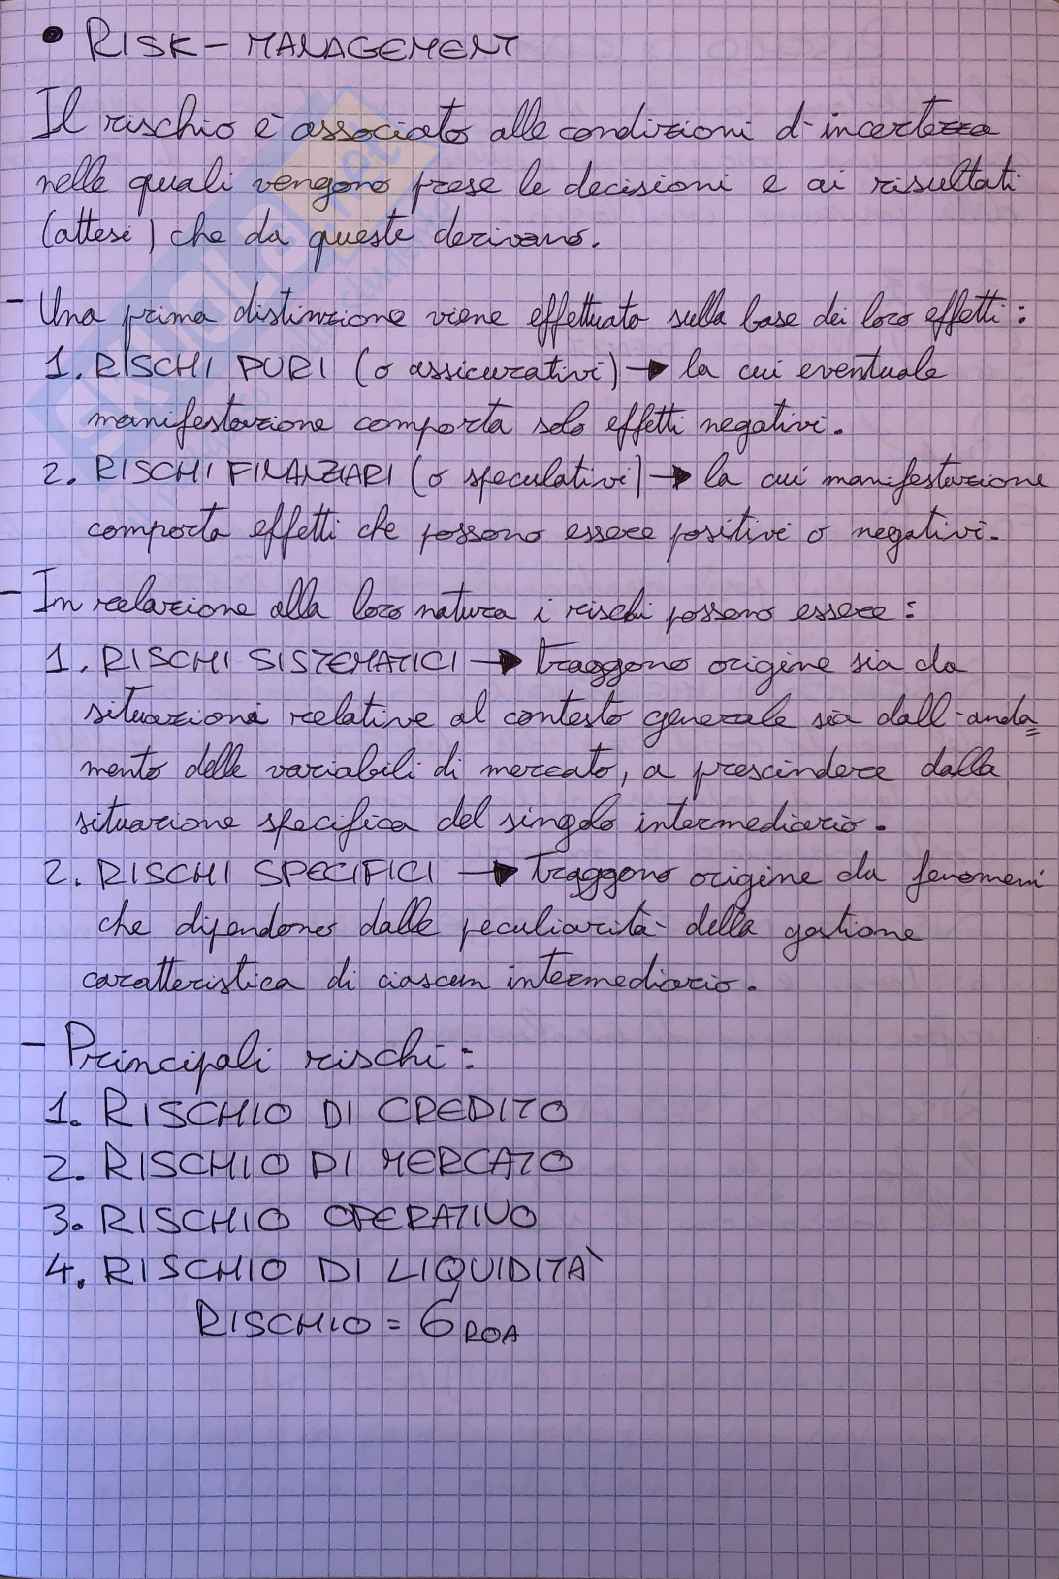 • RISK-MANAGEMENT
Il rischio è associato alle condizioni d'incertezza
nelle quali vengono prese le decisioni e ai risultati
(attesi) che da queste derivano.
- Una prima distinzione viene effettuato sulla base dei loro effetti:
1. RISCHI PURI (o assicurativi) → la cui eventuale
manifestazione comporta solo effetti negativi.
2. RISCHI FINANZIARI (o speculativi) → la cui manifestazione
comporta effetti che possono essere positivi o negativi.
- In relazione alla loro natura i rischi possono essere:
1. RISCHI SISTEMATICI → traggono origine sia da
situazioni relative al contesto generale sia dall'anda=
mento delle variabili di mercato, a prescindere dalla
situazione specifica del singolo intermediario.
2. RISCHI SPECIFICI → traggono origine da fenomeni
che dipendono dalle peculiarità della gestione
caratteristica di ciascun intermediario.
- Principali rischi:
1. RISCHIO DI CREDITO
2. RISCHIO DI MERCATO
3. RISCHIO OPERATIVO
4. RISCHIO DI LIQUIDITÀ
RISCHIO = σ ROA